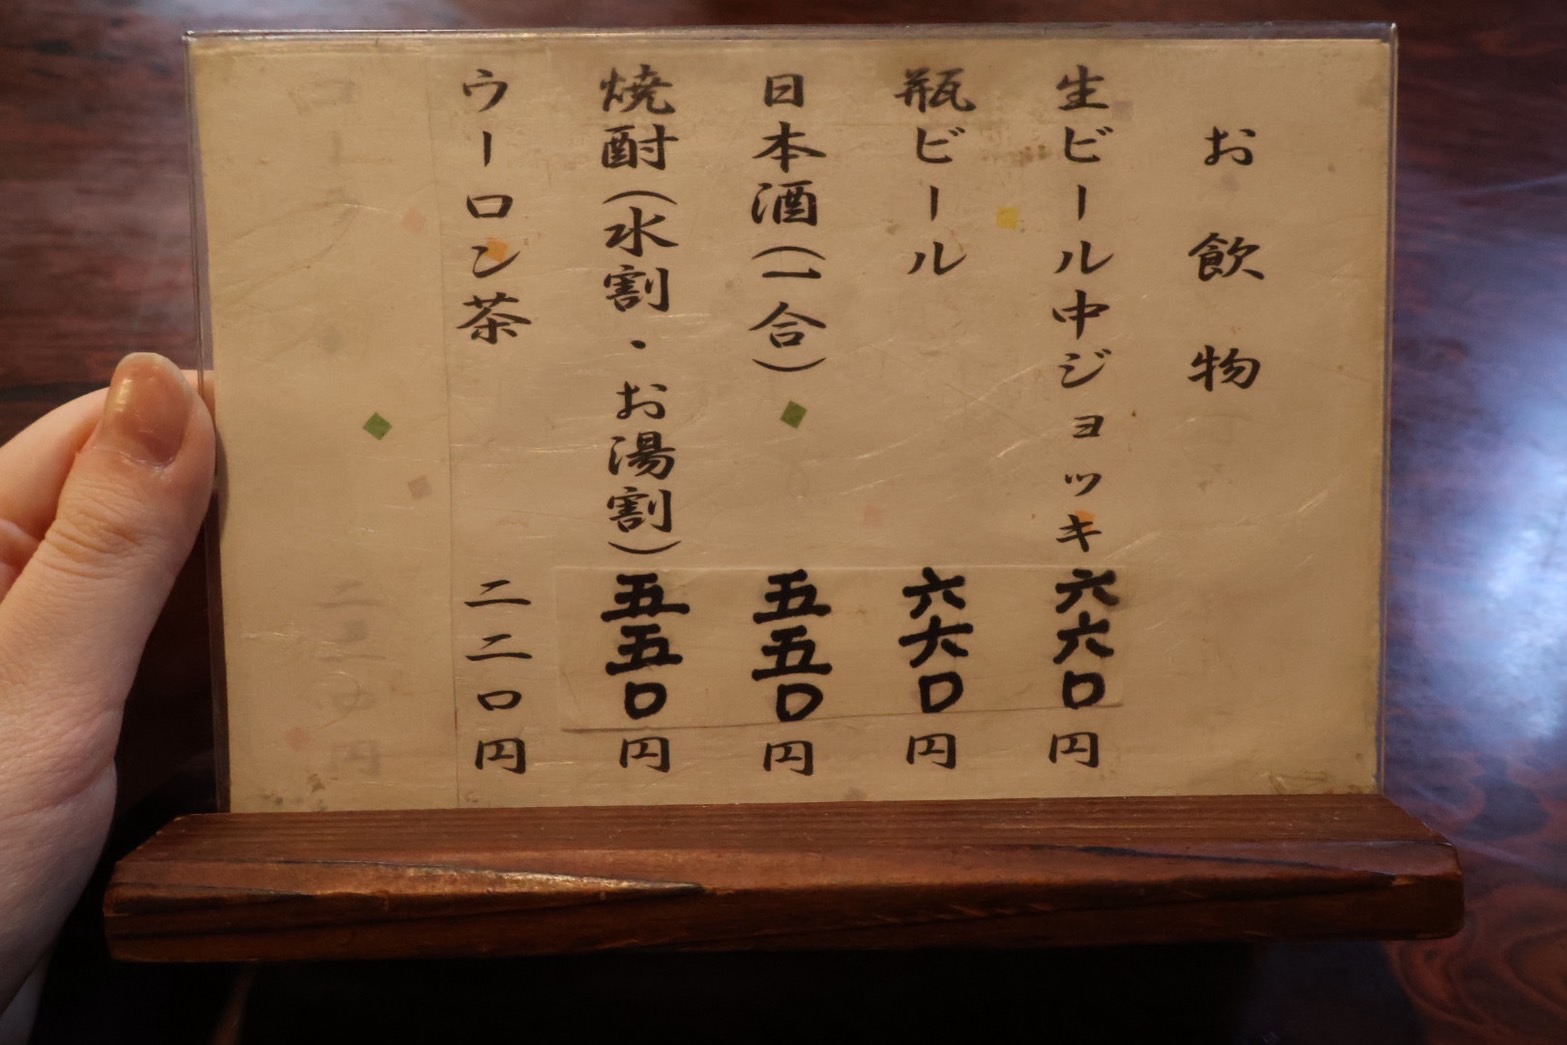 お飲物
生ビール中ジョッキ 六六〇円
瓶ビール 六六〇円
日本酒(一合) 五五〇円
焼酎(水割・お湯割) 五五〇円
ウーロン茶 二二〇円